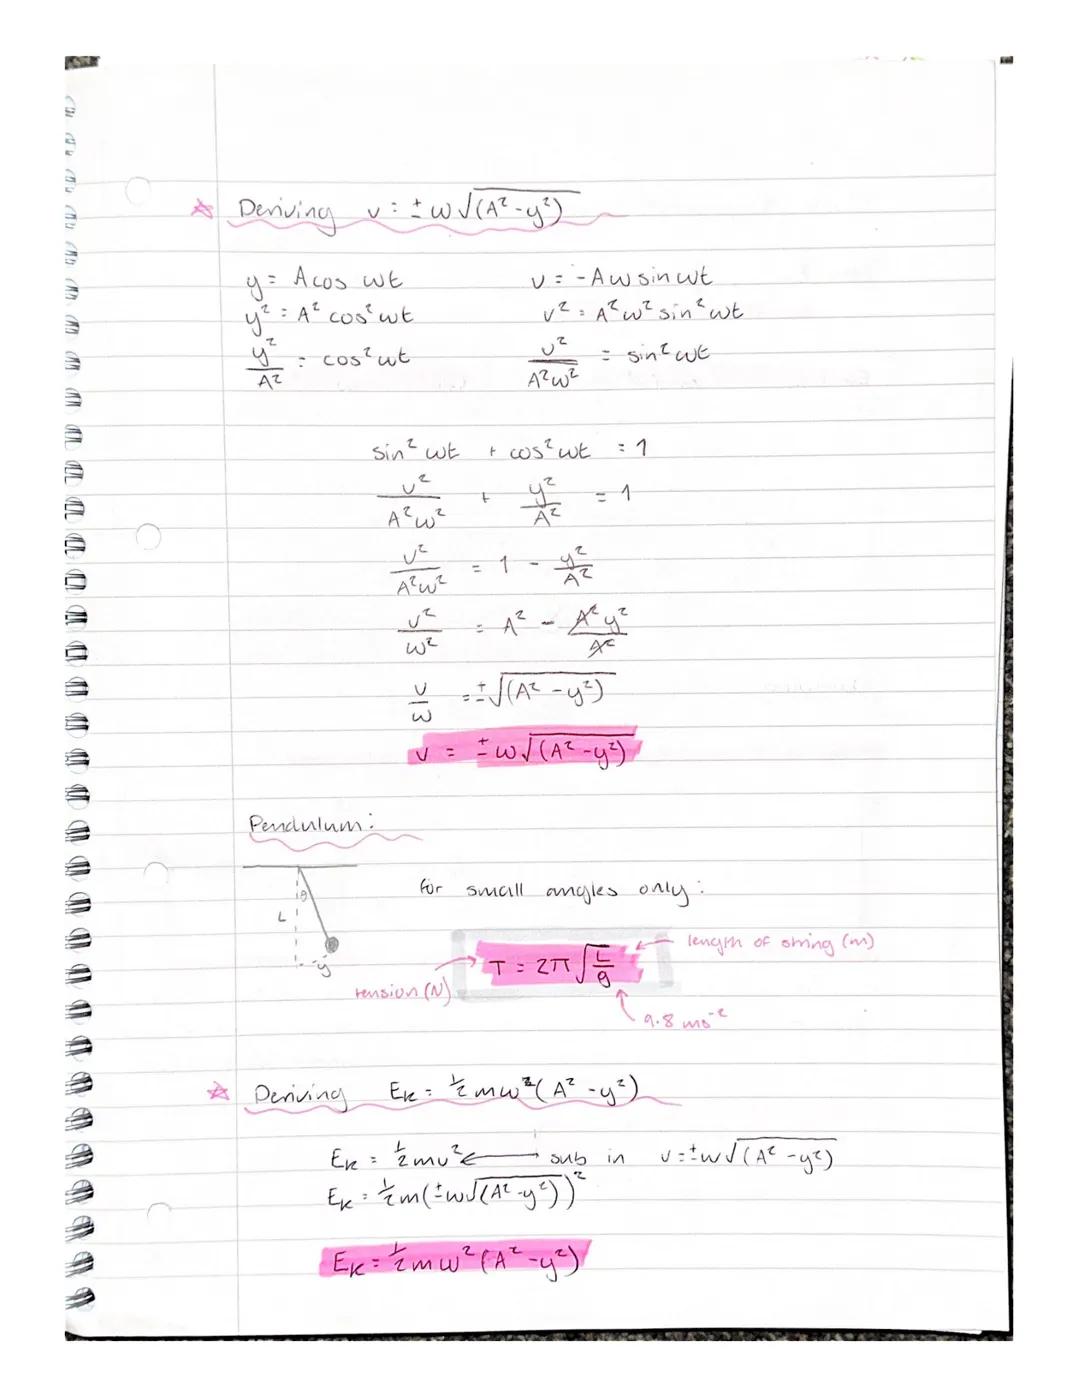 ☆ Deriving v = ± ω√(A² - y²)
y = A cos ωt v = -Aω sin ωt
y² = A² cos² ωt v² = A²ω² sin² ωt
y²/A² = cos² ωt v²/A²ω² = sin² ωt
sin² ωt + cos² ωt = 1
v²/A²ω² + y²/A² = 1
v²/A²ω² = 1 - y²/A²
v²/ω² = A² - A²y²/A²
v/ω = ±√(A² - y²)
v = ± ω√(A² - y²)
Pendulum:
θ
L
y
for small angles only:
length of string (m)
T = 2π√(L/g)
tension (N)
9.8 ms⁻²
☆ Deriving Eκ = ½ mω²(A² - y²)
Eκ = ½ mv² ← sub in v = ±ω√(A² - y²)
Eκ = ½ m(±ω√(A² - y²))²
Eκ = ½ mω²(A² - y²)